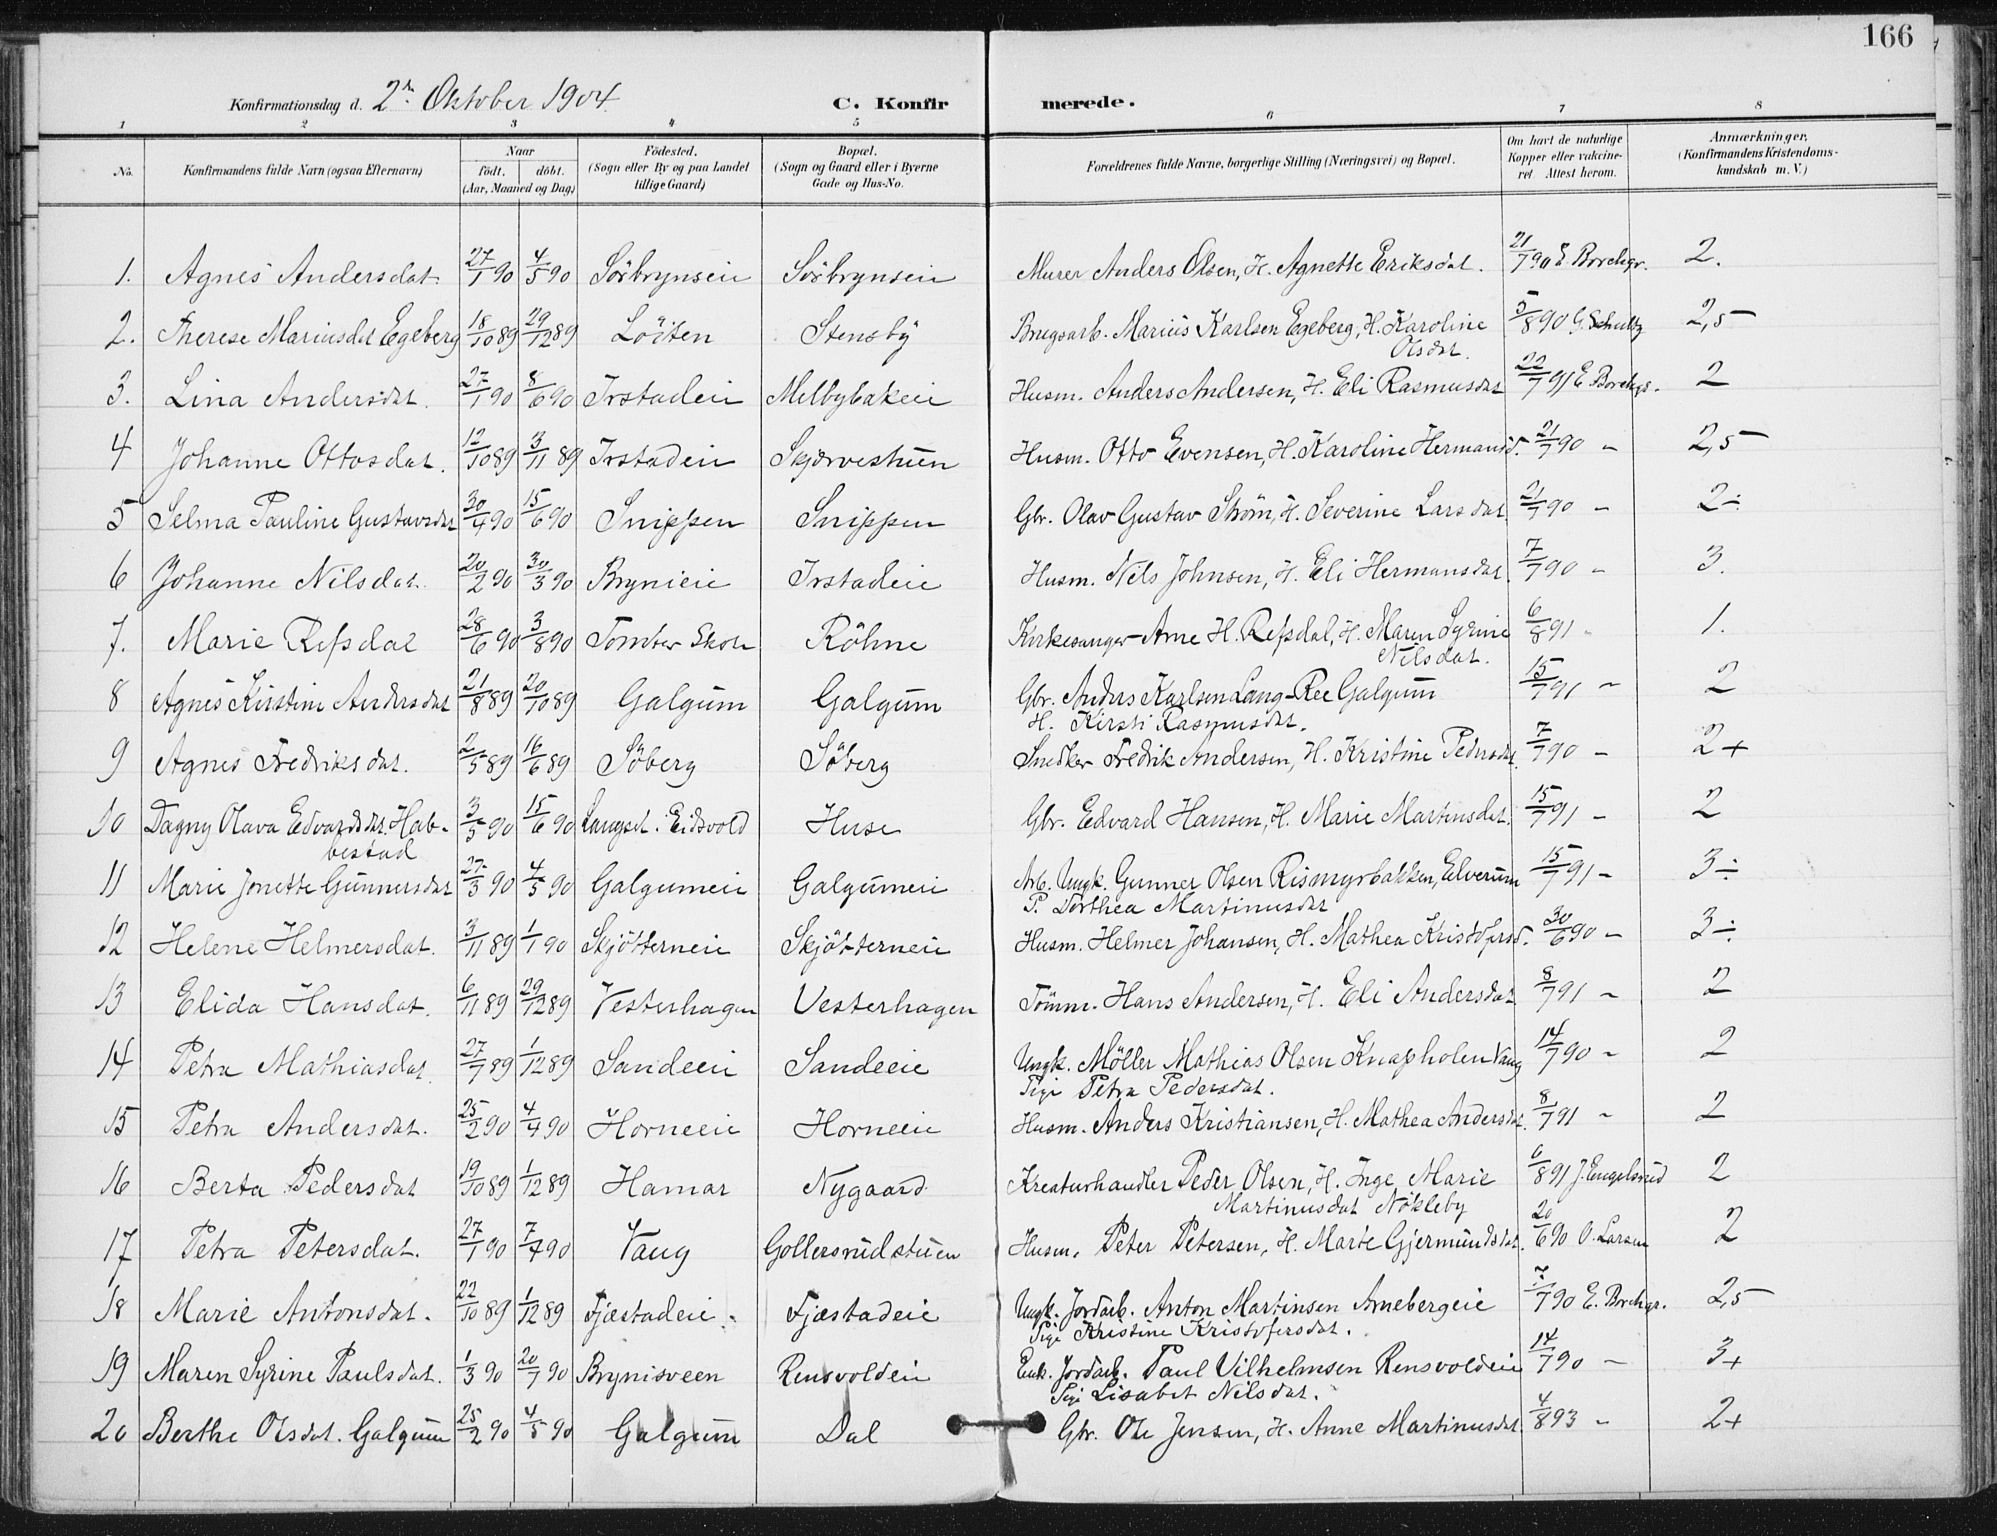 166
Konfirmationsdag d. 2den Oktober 1904. C. Konfirmerede.
1 2 3 4 5 6 7 8
No. Konfirmandens fulde Navn (ogsaa Efternavn) Naar födt. döbt. (Aar, Maaned og Dag) Födested. (Sogn eller By og paa Landet tillige Gaard) Bopæl. (Sogn og Gaard eller i Byerne Gade og Hus-No. Forældrenes fulde Navne, borgerlige Stilling (Næringsvei) og Bopæl. Om havt de naturlige Kopper eller vakcineret Attest herom. Anmærkninger. (Konfirmandens Kristendomskundskab m. V.)
1. Agnes Andersdat. 27/1 90 4/5 90 Sörbrynseie Sörbrynseie Murer Anders Olsen, H. Agnette Eriksdat. 21/7 90 E. Borchgr. 2.
2. Therese Mariusdat Egeberg 18/10 89 29/12 89 Löiten Stensby Brugsarb. Marius Karlsen Egeberg, H. Karoline 5/8 90 G. Schultz 2,5
Olsdat.
3. Lina Andersdat. 27/1 90 8/6 90 Irstadeie Melbybakeie Husm. Anders Andersen, H. Eli Rasmusdat 22/7 91 E. Borchgr. 2
4 Johanne Ottosdat. 12/10 89 3/11 89 Irstadeie Skjærvestuen Husm. Otto Evensen, H. Karoline Hermansd. 21/7 90 - 2,5
5 Selma Pauline Gustavsdat 30/4 90 15/6 90 Snippen Snippen Gbr. Olav Gustav Strøm, H. Severine Larsdat. 21/7 90 - 2÷
6 Johanne Nilsdat. 20/2 90 30/3 90 Brynieie Irstadeie Husm. Nils Johnsen, H. Eli Hermansdat. 7/7 90 - 3.
7. Marie Refsdal 28/6 90 3/8 90 Tomter Skole Röhne Kirkesanger Arne H. Refsdal, H. Maren Syrine 6/8 91 - 1.
Nilsdat.
8 Agnes Kirstine Andersdat 21/8 89 20/10 89 Galgum Galgum Gbr. Anders Karlsen Lang-Ree Galgum 15/7 91 - 2
H. Kirsti Rasmusdat.
9 Agnes Fredriksdat. 2/5 89 16/6 89 Söberg Söberg Snedker Fredrik Andersen, H. Kristine Pedersdat. 7/7 90 - 2+
10 Dagny Olava Edvardsdat. Hab- 3/5 90 15/6 90 Langset. Eidsvold Huse Gbr. Edvard Hansen, H. Marie Martinsdat. 15/7 91 - 2
bestad
11 Marie Jonette Gunnersdat 27/3 90 4/5 90 Galgumeie Galgumeie Arb. Ungk. Gunner Olsen Rismyrbakken, Elverum 15/7 91 - 3÷
P. Dorthea Martinusdat
12 Helene Helmersdat. 3/11 89 1/1 90 Skjötterneie Skjötterneie Husm. Helmer Johansen, H. Mathea Kristofersd. 30/6 90 - 3÷
13 Elida Hansdat. 6/11 89 29/12 89 Vesterhagen Vesterhagen Tömm. Hans Andersen, H. Eli Andersdat 8/7 91 - 2
14 Petra Mathiasdat. 27/7 89 1/12 89 Sandeeie Sandeeie Ungk. Möller Mathias Olsen Knapholen Vang 14/7 90 - 2
Pige Petra Pedersdat.
15 Petra Andersdat. 25/2 90 4/4 90 Horneeie Horneeie Husm. Anders Kristiansen, H. Mathea Andersdat. 8/7 91 - 2
16 Berta Pedersdat 19/10 89 1/12 89 Hamar Nygaard Kreaturhandler Peder Olsen, H. Inge Marie 6/8 91 J. Engelsrud 2
Martinusdat Nökleby
17 Petra Petersdat. 27/1 90 7/4 90 Vang Gollersrudstuen Husm. Peter Petersen, H. Marte Gjermundsdat. 20/6 90 O. Larsen 2
18 Marie Antonsdat. 22/10 89 1/12 89 Fjæstadeie. Fjæstadeie Ungk. Jordarb. Anton Martinsen Arnebergeie 7/7 90 E. Borchgr. 2,5
Pige Kristine Kristofersdat.
19 Maren Syrine Paulsdat. 1/3 90 20/7 90 Brynisveen Rensvoldeie Enk. Jordarb. Paul Vilhelmsen Rensvoldeie 14/7 90 - 3+
Pige Lisabet Nilsdat.
20 Berthe Olsdat. Galgum 25/2 90 4/5 90 Galgum Dal Gbr. Ole Jensen, H. Anne Martinusdat. 4/8 93 - 2+